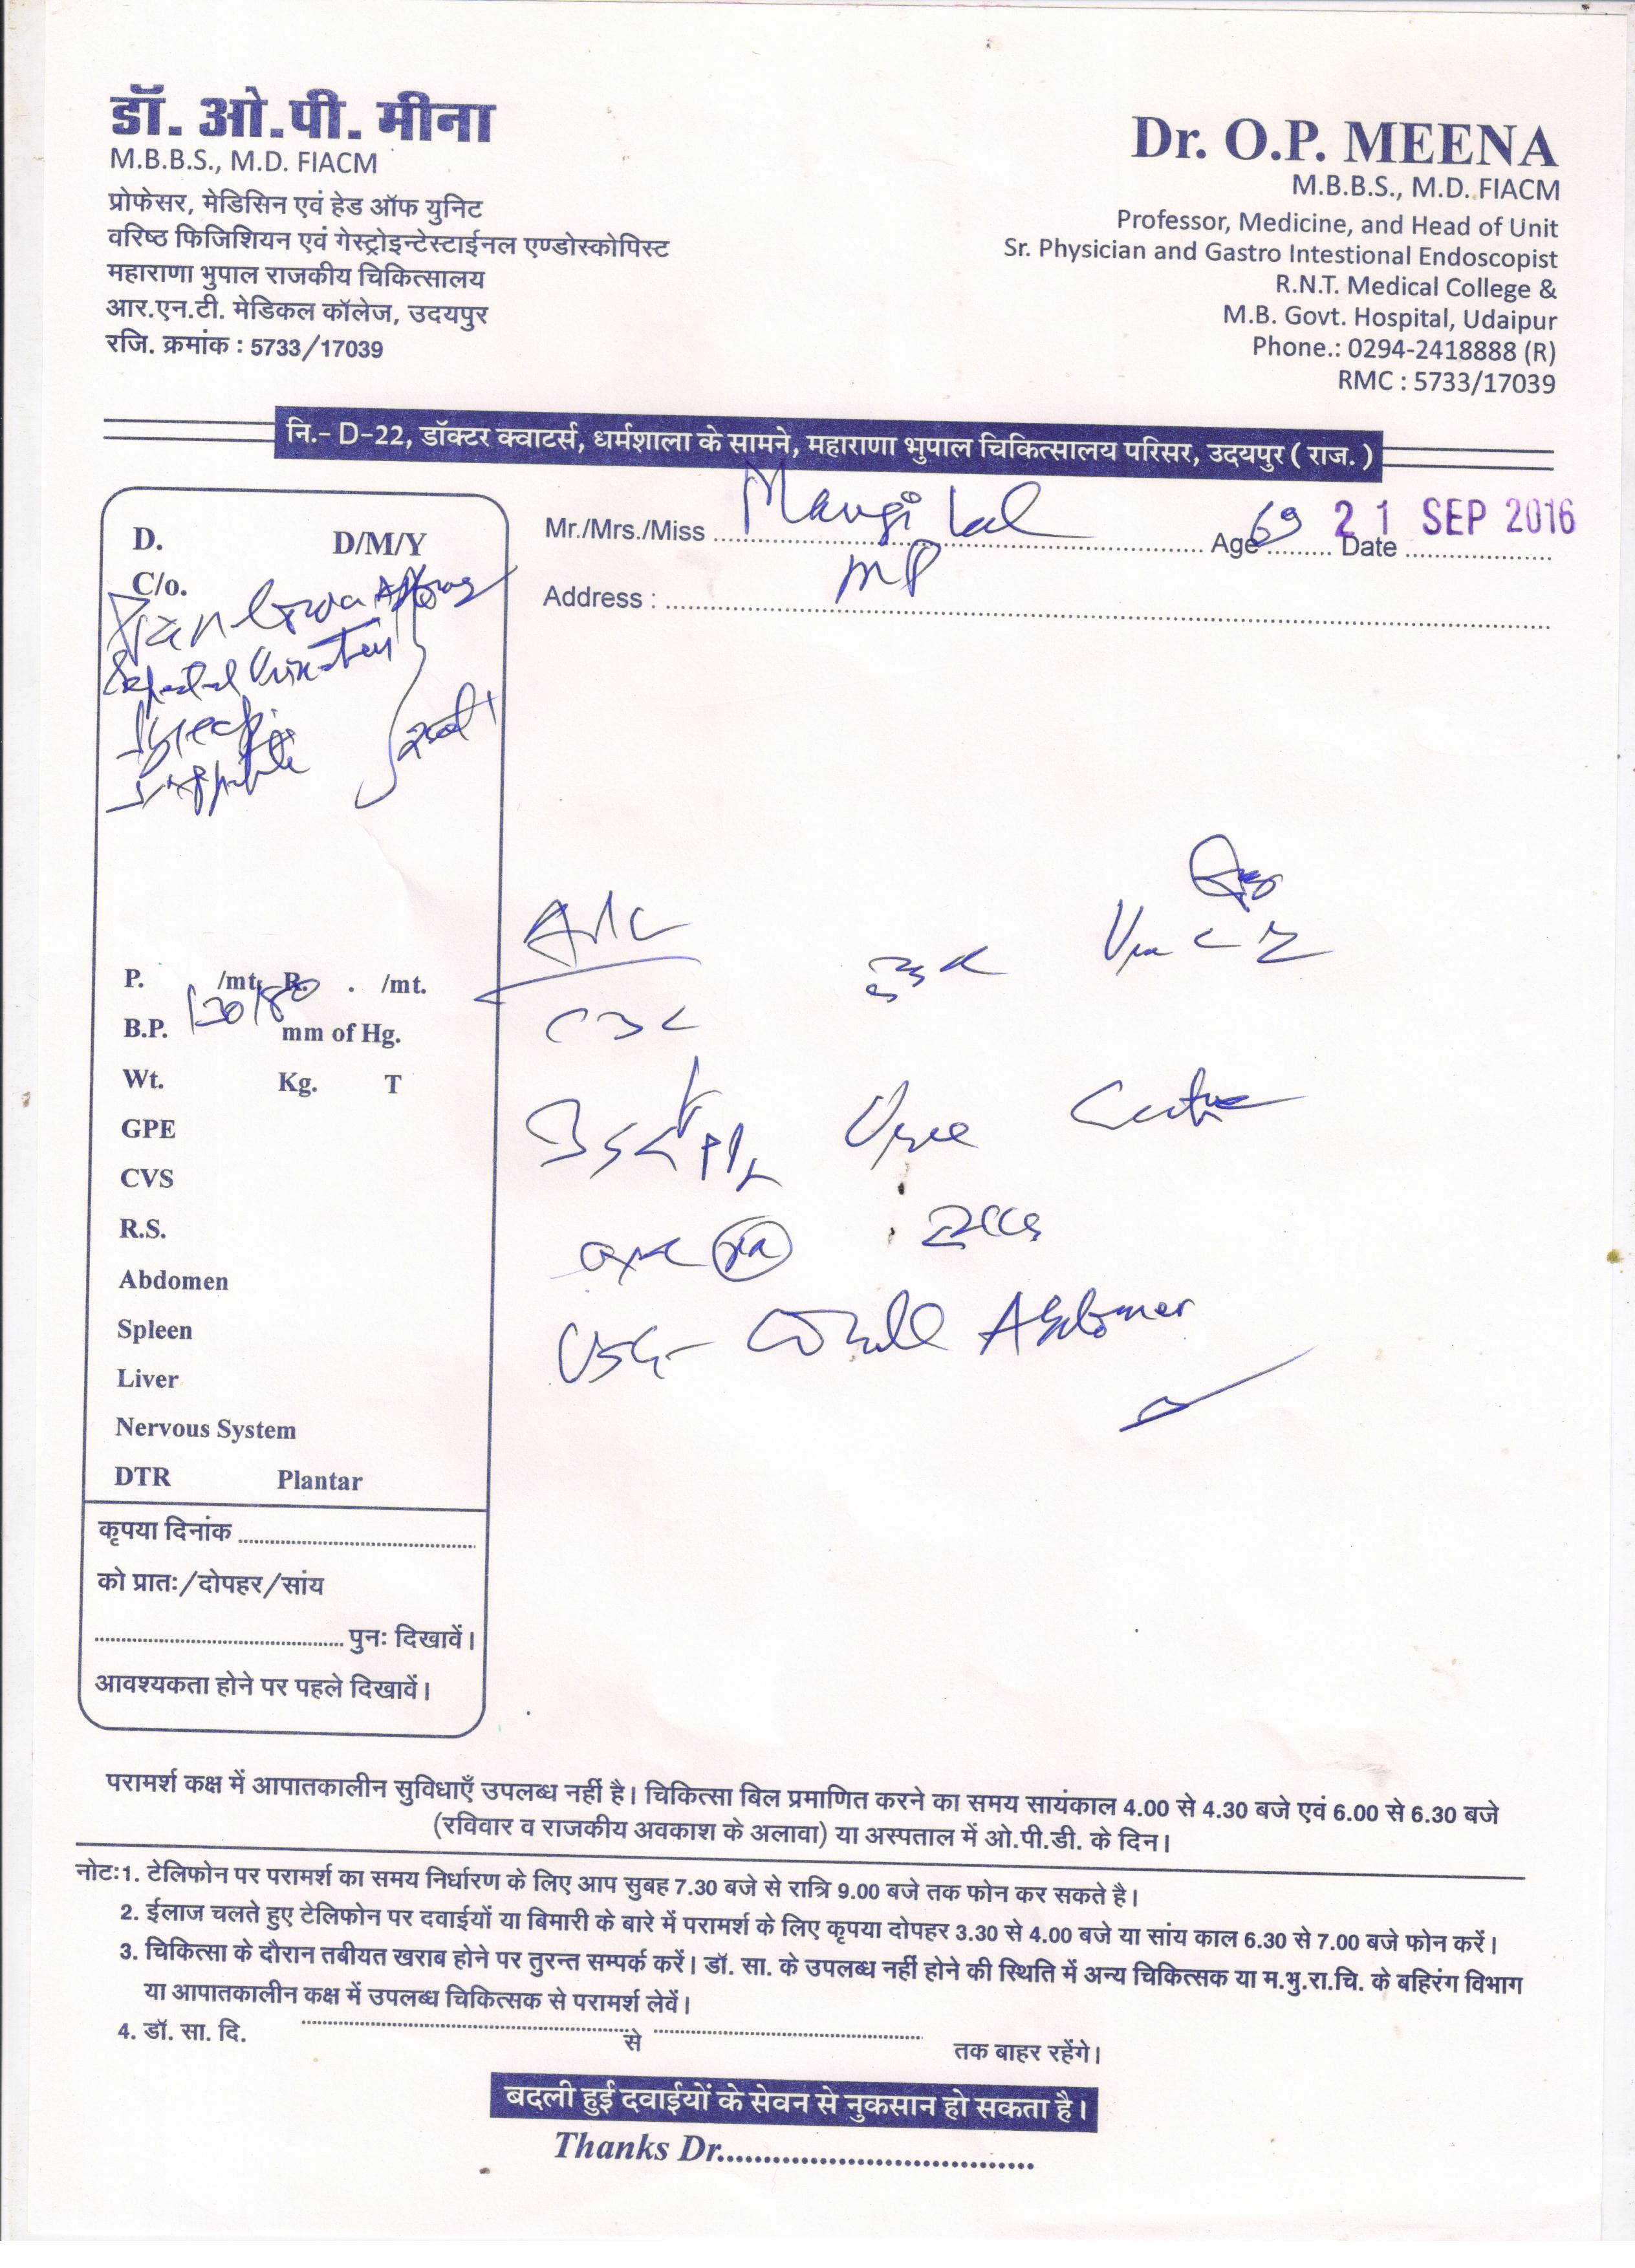 डॉ. ओ.पी. मीना
M.B.B.S., M.D. FIACM
प्रोफेसर, मेडिसिन एवं हेड ऑफ युनिट
वरिष्ठ फिजिशियन एवं गेस्ट्रोइन्टेस्टाईनल एण्डोस्कोपिस्ट
महाराणा भुपाल राजकीय चिकित्सालय
आर.एन.टी. मेडिकल कॉलेज, उदयपुर
रजि. क्रमांक : 5733/17039
Dr. O.P. MEENA
M.B.B.S., M.D. FIACM
Professor, Medicine, and Head of Unit
Sr. Physician and Gastro Intestional Endoscopist
R.N.T. Medical College &
M.B. Govt. Hospital, Udaipur
Phone.: 0294-2418888 (R)
RMC : 5733/17039
नि.- D-22, डॉक्टर क्वाटर्स, धर्मशाला के सामने, महाराणा भुपाल चिकित्सालय परिसर, उदयपुर ( राज. )
Mr./Mrs./Miss Mangi Lal Age 69 Date 21 SEP 2016
Address : MP
D. D/M/Y
C/o.
P. /mt. R. . /mt.
B.P. 130/80 mm of Hg.
Wt. Kg. T
GPE
CVS
R.S.
Abdomen
Spleen
Liver
Nervous System
DTR Plantar
कृपया दिनांक
को प्रातः/दोपहर/सांय
पुनः दिखावें।
आवश्यकता होने पर पहले दिखावें।
CBC
Urine
USG - Whole Abdomen
परामर्श कक्ष में आपातकालीन सुविधाएँ उपलब्ध नहीं है। चिकित्सा बिल प्रमाणित करने का समय सायंकाल 4.00 से 4.30 बजे एवं 6.00 से 6.30 बजे
(रविवार व राजकीय अवकाश के अलावा) या अस्पताल में ओ.पी.डी. के दिन।
नोटः1. टेलिफोन पर परामर्श का समय निर्धारण के लिए आप सुबह 7.30 बजे से रात्रि 9.00 बजे तक फोन कर सकते है।
2. ईलाज चलते हुए टेलिफोन पर दवाईयों या बिमारी के बारे में परामर्श के लिए कृपया दोपहर 3.30 से 4.00 बजे या सांय काल 6.30 से 7.00 बजे फोन करें।
3. चिकित्सा के दौरान तबीयत खराब होने पर तुरन्त सम्पर्क करें। डॉ. सा. के उपलब्ध नहीं होने की स्थिति में अन्य चिकित्सक या म.भु.रा.चि. के बहिरंग विभाग
या आपातकालीन कक्ष में उपलब्ध चिकित्सक से परामर्श लेवें।
4. डॉ. सा. दि. से तक बाहर रहेंगे।
बदली हुई दवाईयों के सेवन से नुकसान हो सकता है।
Thanks Dr.